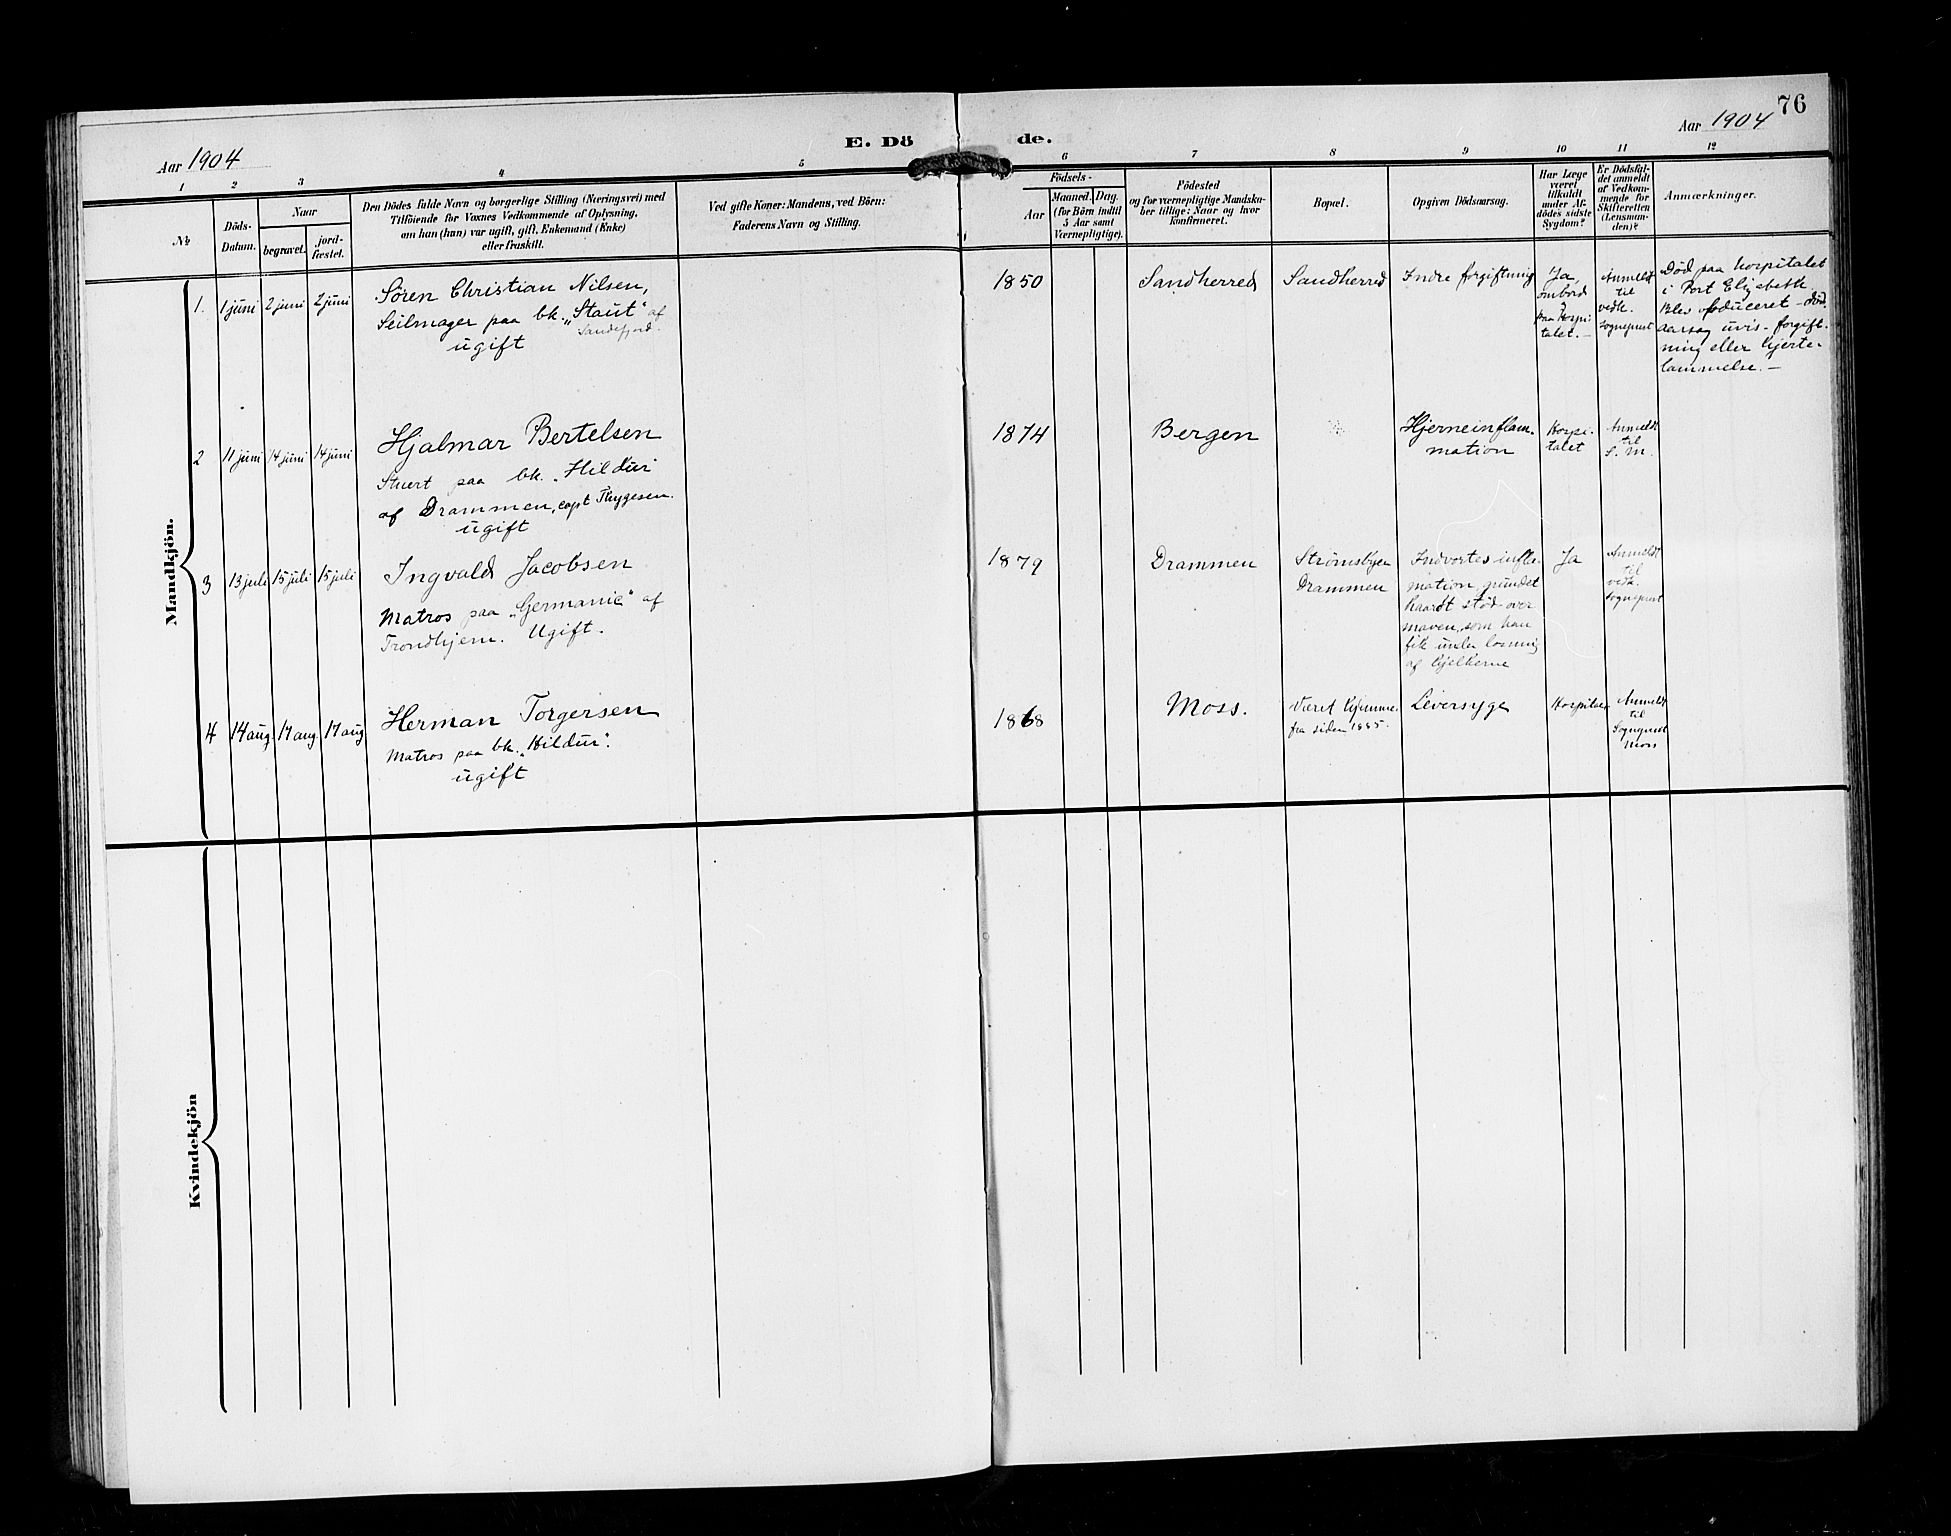 76
Aar 1904
E. Dö de.
Aar 1904
1 2 3 4 5 6 7 8 9 10 11 12
№
Döds-
Datum.
Naar
begravet.
jord-
fæstet.
Den Dödes fulde Navn og borgerlige Stilling (Næringsvei) med
Tilföiende for Voxnes Vedkommende af Oplysning,
om han (hun) var ugift, gift, Enkemand (Enke)
eller fraskilt.
Ved gifte Koner: Mandens, ved Börn:
Faderens Navn og Stilling.
Födsels-
Aar
Maaned. Dag.
(for Börn indtil
5 Aar samt
Værnepligtige).
Födested
og for værnepligtige Mandska-
ber tillige: Naar og hvor
konfirmeret.
Bopæl.
Opgiven Dödsaarsag.
Har Læge
været
tilkaldt
under Af-
dödes sidste
Sygdom?
Er Dödsfal-
det anmeldt
af Vedkom-
mende for
Skifteretten
(Lensman-
den)?
Anmærkninger.
Mandkjön.
1. 1 juni 2 juni 2 juni
Sören Christian Nilsen,
Seilmager paa bk. „Staut" af
Sandefjord.
ugift
1850
Sandherred
Sandherred
Indre forgiftning
Ja,
ombord
paa Hospi-
talet. –
Anmeldt
til
vedk.
sogneprest
Död paa hospitalet
i Port Elizabeth.
Blev obduceret – död
aarsag uvis – forgift-
ning eller hjerte-
lammelse. –
2 11 juni 14 juni 14 juni
Hjalmar Bertelsen
Stuert paa bk. „Hildur
af Drammen, capt Thygesen.
ugift
1874
Bergen
Hjerneinflam-
mation
Hospi-
talet
Anmeldt
til
S. M.
3 13 juli 15 juli 15 juli
Ingvald Jacobsen
Matros paa „Germanic" af
Trondhjem. Ugift.
1879
Drammen
Strömsbyen
Drammen
Indvortes infla-
mation, grundet
haardt stöd over
maven, som han
fik under losning
af bjelkerne
Ja
Anmeldt
til
vedk.
sogneprest
4 14 aug. 17 aug 17 aug
Herman Torgersen
Matros paa bk. „Hildur".
ugift
1868
Moss.
Været hjemme-
fra siden 1885.
Leversyge
Hospitalet
Anmeldt
til
Sogneprest
Moss
Kvindekjön